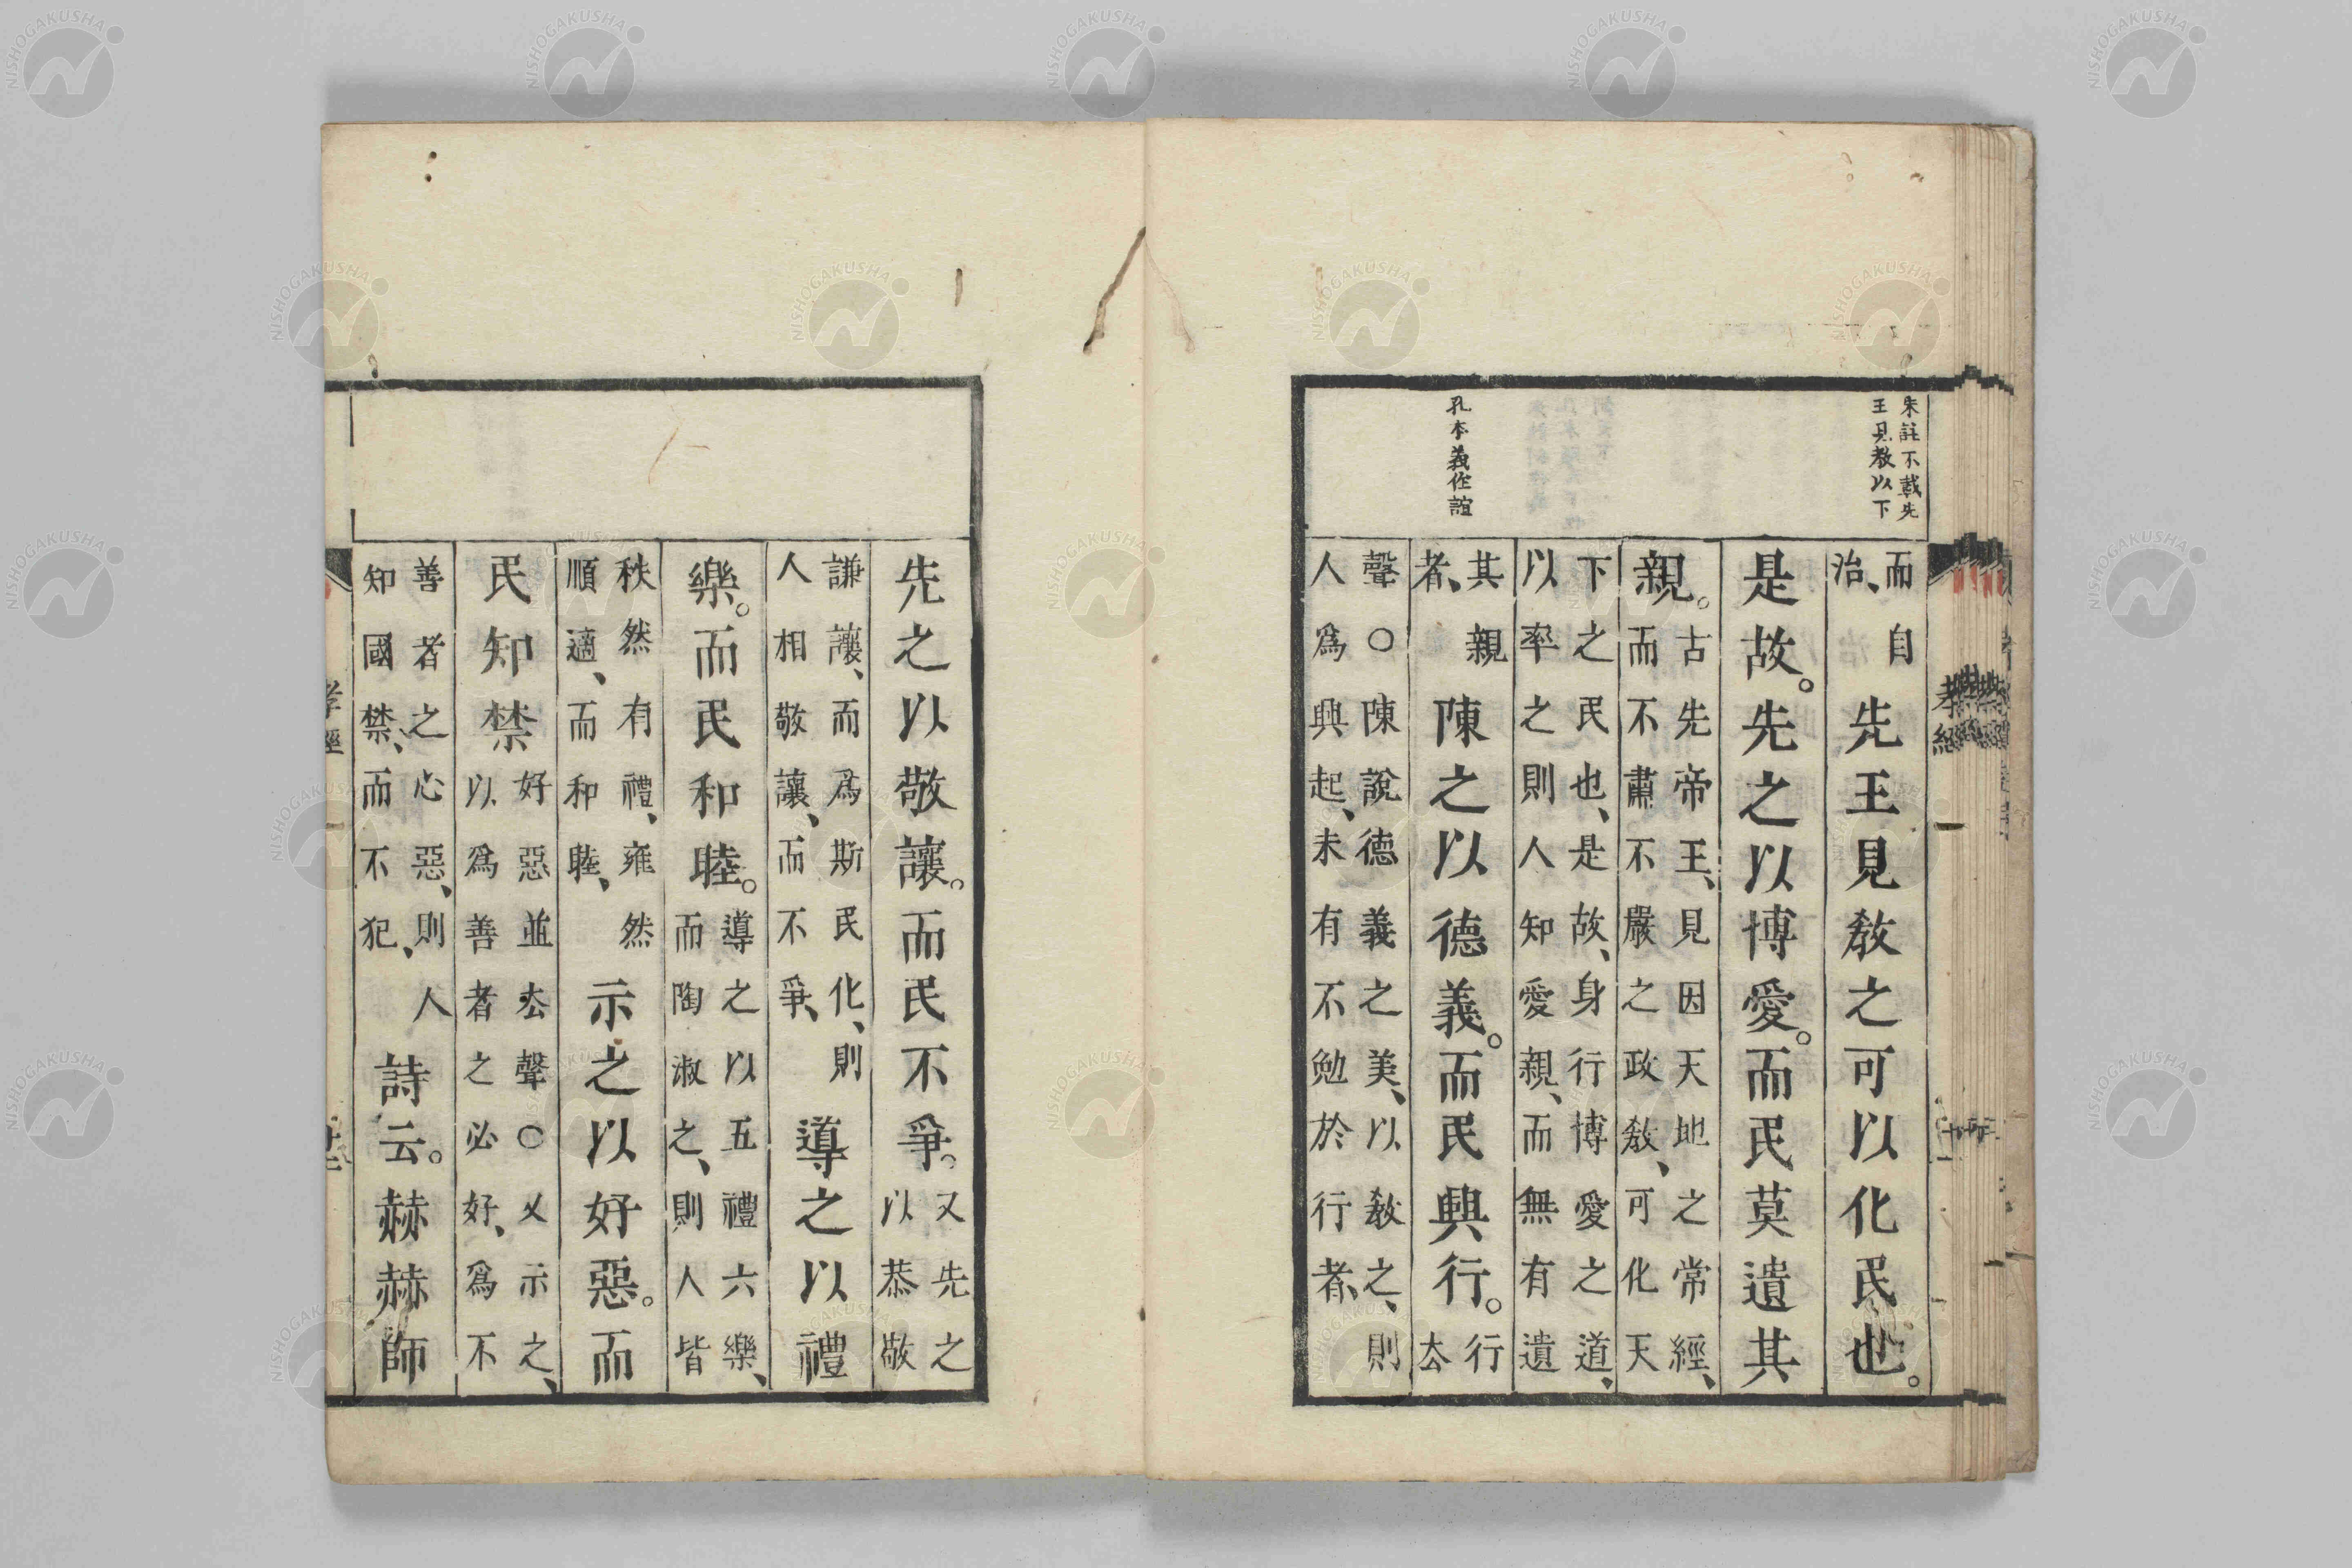 朱註不載先
王見教以下
孔本義作誼
而自
治、
先王見敎之可以化民也。
是故。先之以博愛。而民莫遺其
親。
古先帝王、見因天地之常經、
而不肅不嚴之政敎、可化天
下之民也、是故、身行博愛之道、
以率之則人知愛親、而無有遺
其親
者、
陳之以德義。而民興行。
行
去
聲〇陳說德義之美、以敎之、則
人爲興起、未有不勉於行者、
先之以敬讓。而民不爭。
又先之
以恭敬
謙讓、而爲斯民化、則
人相敬讓、而不爭、
導之以禮
樂。而民和睦。
導之以五禮六樂、
而陶淑之、則人皆
秩然有禮、雍然
順適、而和睦、
示之以好惡。而
民知禁
好惡並去聲〇又示之、
以爲善者之必好、爲不
善者之必惡、則人
知國禁、而不犯、
詩云。赫赫師
孝經
NISHOGAKUSHA